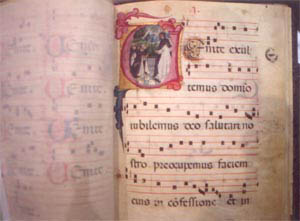 Venite exul
temus domino
iubilemus deo salutari no
stro preocupemus faciem
eius in cōfessione et in